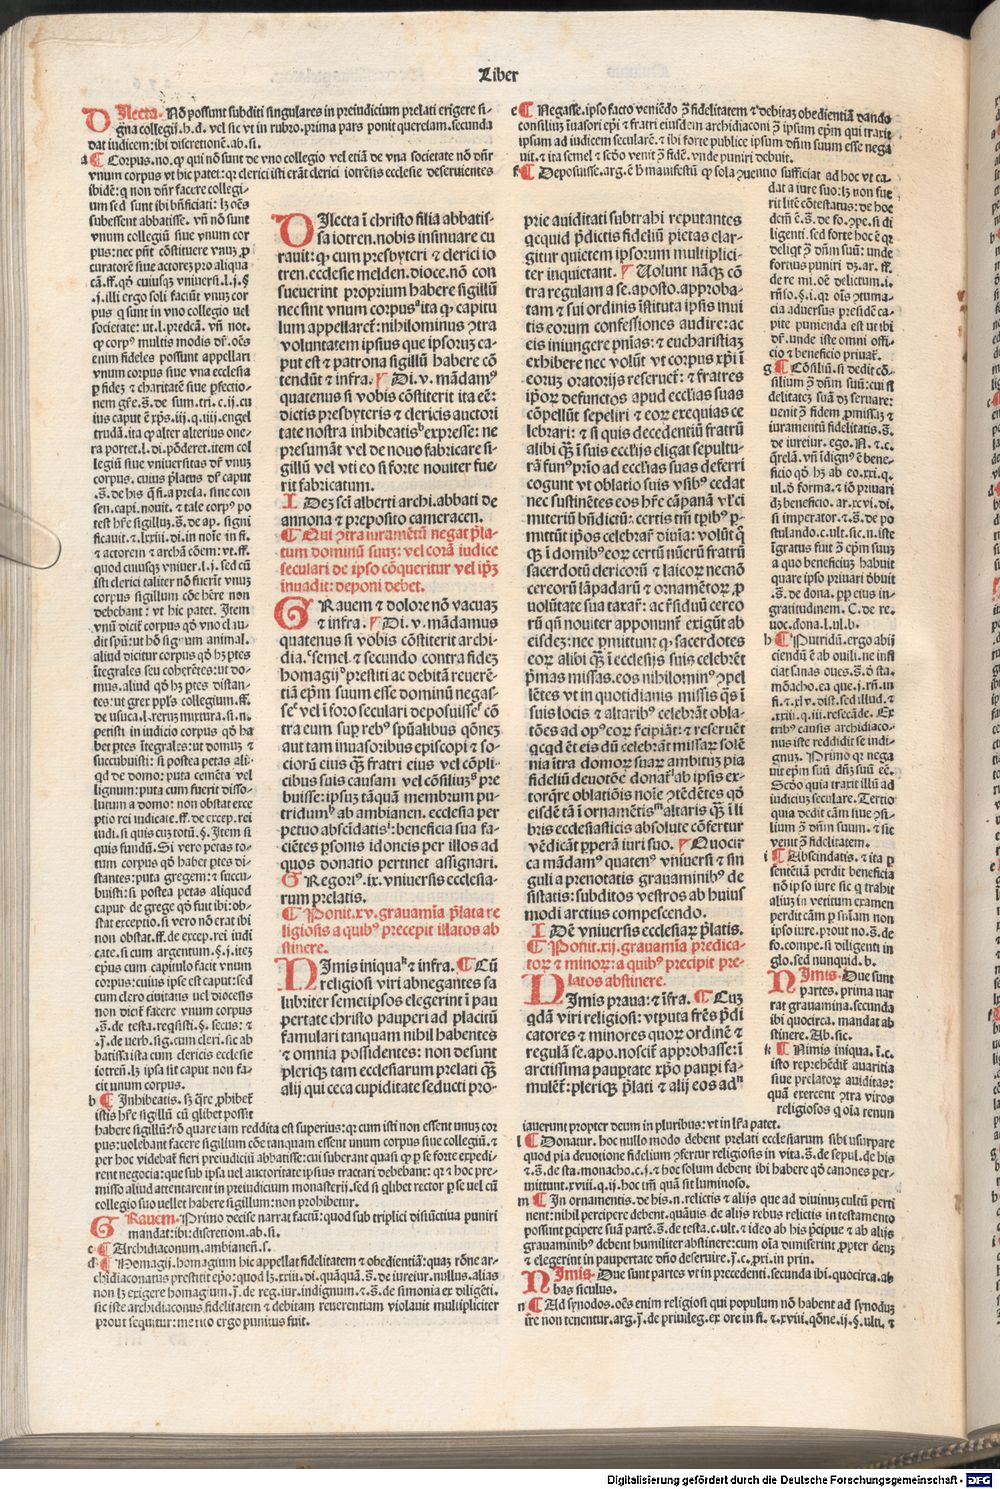 Liber
DIlecta. Nō possunt subditi singulares in preiudicium prelati erigere si-
gna collegij. h. d. vel sic vt in rubro. prima pars ponit querelam. secunda
dat iudicem: ibi discretionē. ab. si.
a ¶ Corpus. no. ꝙ qui nō sunt de vno collegio vel etiā de vna societate nō dn̄r
vnum corpus vt hic patet: qꝛ clerici isti erāt clerici iotrēsis ecclesie deseruientes
ibidē: ꝗ non dn̄r facere collegi-
um sed sunt ibi bn̄ficiati: lꝫ oēs
subessent abbatisse. vn̄ nō sunt
vnum collegiū siue vnum cor
pus: nec pn̄t cōstituere vnuꝫ ꝓ
curatorē siue actoreꝫ pro aliqua
cā. ff. qđ cuiusqꝫ vniuersi. l. j. §
j. illi ergo soli faciūt vnuꝫ cor
pus ꝗ sunt in vno collegio vel
societate: ut. l. predcā. vn̄ not.
ꝙ corpꝰ multis modis dr̄. oēs
enim fideles possunt appellari
vnum corpus siue vna ecclesia
ꝑ fideꝫ ⁊ charitatē siue ꝑfectio-
nem gr̄e. s̄. de sum. tri. c. ij. cu
ius caput ē xp̄s. iij. q. iij. engel
trudā. ita ꝙ alter alterius one-
ra portet. l. di. pōderet. item col
legiū siue vniuersitas dr̄ vnuꝫ
corpus. cuius platus dr̄ caput
s̄. de his ꝗ fi. a prela. sine con
sen. capi. nouit. ⁊ tale corpꝰ po
test hr̄e sigilluꝫ. s̄. de ap. signi
ficauit. ⁊. lxxiii. di. in noīe in fi.
⁊ actorem ⁊ archā cōem: vt. ff.
quod cuiusqꝫ vniuer. l. j. sed cū
isti clerici taliter nō fuerīt vnuꝫ
corpus sigillum cōe hēre non
debebant: vt hic patet. Item
vnū dicit̄ corpus qđ vno clau-
dit̄ spū: ut hō signum animal.
aliud dicitur corpus qđ hꝫ ptes
ītegrales seu coherētes: ut do-
mus. aliud qđ hꝫ ptes distan-
tes: ut grex ppl̄s collegium. ff.
de usuca. l. rerum mixtura. si. n.
petisti in iudicio corpus qđ ha
bet ptes ītegrales: ut domuꝫ ⁊
succubuisti: si postea petas ali-
qđ de domo: puta cemēta vel
lignum: puta cum fuerit disso-
lutum a domo: non obstat exce
ptio rei iudicate. ff. de excep. rei
iudi. si quis cuꝫ totū. §. Item si
quis fundū. Si vero petas to-
tum corpus qđ habet ptes di-
stantes: puta gregem: ⁊ succu-
buisti: si postea petas aliquod
caput de grege qđ fuit ibi: ob-
stat exceptio. si vero nō erat ibi
non obstat. ff. de excep. rei iudi
cate. si cum argentum. §. j. iteꝫ
ep̄us cum capitulo facit vnum
corpus: cuius ipse est caput: sed
cum clero ciuitatis uel diocesis
non dicit̄ facere vnum corpus
s̄. de testa. reqsisti. §. secus: ⁊
j̄. de uerb. sig. cum cleri. sic ab
batissa ista cum clericis ecclesie
iotreñ. lꝫ ipsa sit caput non fa-
cit unum corpus.
b ¶ Inhibeatis. sꝫ qr̄e ꝓhibet̄
istis hr̄e sigillū cū qlibet possit
habere sigillū? rō quare iam reddita est superius: qꝛ cum isti non essent unuꝫ cor
pus: uolebant facere sigillum cōe tanquam essent unum corpus siue collegiū. ⁊
per hoc videbat̄ fieri preiudiciū abbatisse: cui suberant quasi ꝙ ꝑ se forte expedi-
rent negocia: que sub ipsa uel auctoritate ipsius tractari debebant: qꝛ ⁊ hoc pre-
misso aliud attentarent in preiudicium monasterij. sed si qlibet rector ꝑ se uel cū
collegio suo vellet habere sigillum: non prohibetur.
GRauem. Primo decise narrat factū: quod sub triplici distinctiua puniri
mandat: ibi: discretioni. ab. si.
c ¶ Archidiaconum. ambianeñ. s.
d ¶ Homagij. homagium hic appellat fidelitatem ⁊ obedientiā: quaꝫ rōne ar-
chidiaconatus prestitit ep̄o: quod lꝫ. xxiii. di. quāquā. s̄. de iureiur. nullus. alias
non lꝫ exigere homagium. j̄. de reg. iur. indignum. ⁊. s̄. de simonia ex diligēti.
sic iste archidiaconus fidelitatem ⁊ debitam reuerentiam violauit multipliciter
prout sequitur: merito ergo punitus fuit.
DIlecta ī christo filia abbatis-
sa iotren. nobis insinuare cu
rauit: ꝙ cum presbyteri ⁊ clerici io
tren. ecclesie melden. dioce. nō con
sueuerint proprium habere sigillū
nec sint vnum corpusᵃ ita ꝙ capitu
lum appellaret̄: nihilominus ꝯtra
voluntatem ipsius que ipsoruꝫ ca-
put est ⁊ patrona sigillū habere cō
tendūt ⁊ infra. ¶ Di. v. mādamꝰ
quatenus si vobis cōstiterit ita eē:
dictis presbyteris ⁊ clericis auctori
tate nostra inhibeatisᵇ expresse: ne
presumāt vel de nouo fabricare si-
gillū vel vti eo si forte nouiter fue
rit fabricatum.
IDeꝫ sc̄i alberti archi. abbati de
annona ⁊ preposito cameracen.
¶ Qui ꝯtra iuramētū negat p̄la-
tum dominū suuꝫ: vel corā iudice
seculari de ipso cōqueritur vel ip̄ꝫ
inuadit: deponi debet.
GRauem ⁊ dolore nō vacuaꝫ
⁊ infra. ¶ Di. v. mādamus
quatenus si vobis cōstiterit archi-
dia.ᶜ semel ⁊ secundo contra fideꝫ
homagijᵈ prestiti ac debitā reuerē-
tiā ep̄m suum esse dominū negas-
seᵉ vel ī foro seculari deposuisseᶠ cō
tra eum sup rebꝰ spūalibus qōneꝫ
aut tam inuasoribus episcopi ⁊ so-
ciorū eius qꝫ fratri eius vel cōpli-
cibus suis causam vel cōsiliuꝫᵍ pre
buisse: ipsuꝫ tāquā membrum pu-
tridumʰ ab ambianen. ecclesia per
petuo abscidatisⁱ: beneficia sua fa-
ciētes ꝑsonis idoneis per illos ad
quos donatio pertinet assignari.
GRegoriꝰ. ix. vniuersis ecclesia-
rum prelatis.
¶ Ponit. xv. grauamīa p̄lata re
ligiosis a quibꝰ precepit illatos ab
stinere.
NImis iniquaᵏ ⁊ infra. ¶ Cū
religiosi viri abnegantes sa
lubriter semetipsos elegerint ī pau
pertate christo pauperi ad placitū
famulari tanquam nihil habentes
⁊ omnia possidentes: non desunt
ꝑleriqꝫ tam ecclesiarum prelati qꝫ
alij qui ceca cupiditate seducti pro-
prie auiditati subtrahi reputantes
qcquid p̄dictis fideliū pietas elar-
gitur quietem ipsorum multiplici-
ter inquietant. ¶ Uolunt nāqꝫ cō
tra regulam a se. aposto. approba-
tam ⁊ sui ordinis īstituta ip̄sis inui
tis eorum confessiones audire: ac
eis iniungere pn̄ias: ⁊ eucharistiaꝫ
exhibere nec volūt vt corpus xp̄i ī
eoruꝫ oratorijs reseruet̄: ⁊ fratres
ip̄oꝝ defunctos apud ecclias suas
cōpellūt sepeliri ⁊ eoꝝ exequias ce
lebrari: ⁊ si quis decedentiū fratrū
alibi qꝫ ī suis ecclīis eligat sepultu-
rā funꝰ pr̄io ad ecclīas suas deferri
cogunt vt oblatio suis vsibꝰ cedat
nec sustinētes eos hr̄e cāpanā vl̓ ci
miteriū bn̄dictū: certis tm̄ tꝑibꝰ ꝑ-
mittūt ip̄os celebrar̄ diuīa: volūt ꝙ
qꝫ ī domibꝰ eoꝝ certū nūerū fratrū
sacerdotū clericorū ⁊ laicoꝝ necnō
cereorū lāpadarū ⁊ ornamētoꝝ ꝓ
volūtate sua taxar̄: ac r̄siduū cereo
rū qn̄ nouiter apponunt̄ exigūt ab
eisdeꝫ: nec ꝑmittunt ꝙ sacerdotes
eoꝝ alibi qꝫ ī ecclesijs suis celebrēt
p̄mas missas. eos nihilominꝰ ꝯpel
lētes vt in quotidianis missis qꝫ ī
suis locis ⁊ altaribꝰ celebrāt obla-
tōes ad opꝰ eoꝝ r̄cipiāt: ⁊ reseruēt
qcqd ēt eis dū celebrāt missaꝝ solē
nia ītra domoꝝ suaꝝ ambituꝫ pia
fideliū deuotōe donat̄ˡ ab ip̄sis ex-
torqr̄e oblatiōis noīe ꝯtēdētes qđ
eisdē tā ī ornamētisᵐ altaris qꝫ ī li
bris ecclesiasticis absolute cōfertur
vēdicāt ꝑꝑerā iuri suo. ¶ Quocir
ca mādamꝰ quatenꝰ vniuersi ⁊ sin
guli a prenotatis grauaminibꝰ de
sistatis: subditos vestros ab huius
modi arctius compescendo.
IDē vniuersis ecclesiaꝝ p̄latis.
¶ Ponit. xij. grauamīa predica-
toꝝ ⁊ minoꝝ: a quibꝰ precipit pre-
latos abstinere.
NImis praua: ⁊ īfra. ¶ Cuꝫ
qdā viri religiosi: vtputa fr̄es p̄di
catores ⁊ minores quoꝝ ordinē ⁊
regulā se. apo. noscit̄ approbasse: ī
arctissima paupertate xp̄o paupi fa-
mulēt̄: pleriqꝫ p̄lati ⁊ alij eos adⁿ
e ¶ Negasse. ipso facto veniēdo ꝯ̄ fidelitatem ⁊ debitaꝫ obedientiā dando
consiliuꝫ īuasori ep̄i ⁊ fratri eiusdem archidiaconi ꝯ̄ ipsum ep̄m qui traxit
ipsum ad iudicem secularē. ⁊ ibi forte publice ipsum dn̄m suum esse nega
uit. ⁊ ita semel ⁊ scd̄o venit ꝯ̄ fidē. vnde puniri debuit.
f ¶ Deposuisse. arg. ē h̄ manifestū ꝙ sola ꝯuentio sufficiat ad hoc vt ca-
dat a iure suo: lꝫ non fue
rit litē cōtestatus: de hoc
dcm̄ ē. s̄. de fo. ꝯpe. si di
ligenti. sed forte hoc ē qꝛ
deliqt ꝯ̄ dn̄m suū: unde
fortius puniri dꝫ. ar. ff.
de re mi. oē delictum. i.
rn̄so. §. i. qꝛ oīs ꝯtuma-
cia aduersus presidē ca-
pite punienda est ut ibi
dr̄. unde iste omni offi-
cio ⁊ beneficio priuat̄.
g ¶ Cōsiliū. si dedit cō-
silium ꝯ̄ dn̄m suū: cui fi
delitateꝫ suā dꝫ seruare:
uenit ꝯ̄ fidem ꝓmissuꝫ ⁊
iuramentū fidelitatis. s̄.
de iureiur. ego. N. ⁊. c.
qrelā. vn̄ īdignꝰ ē bene-
ficio qđ hꝫ ab eo. xxi. q.
ul. ō forma. ⁊ iō priuari
dꝫ beneficio. ar. xcvi. di.
si imperator. ⁊. s̄. de po
stulando. c. ult. sic. n. iste
īgratus fuit ꝯ̄ ep̄m suuꝫ
a quo beneficiuꝫ habuit
quare ipso priuari ōbuit
s̄. de dona. ꝓp eius in-
gratitudinem. C. de re.
uoc. dona. l. ul. b.
h ¶ Putridū. ergo abij
ciendū ē ab ouili. ne infi
ciat sanas oues. s̄. ō sta.
mōacho. ea que. j. rn̄. in
fi. ⁊. xlv. dist. sed illud. ⁊
xxiii. q. iii. resecāde. Ex
tribꝰ causis archidiaco-
nus iste reddidit se indi-
gnuꝫ. Primo qꝛ nega
uit ep̄m suū dn̄ꝫ suū eē.
Scd̄o quia traxit illū ad
iudiciuꝫ seculare. Tertio
quia dedit cām siue ꝯsi-
lium ꝯ̄ dn̄m suum. ⁊ sic
venit ꝯ̄ fidelitatem.
i ¶ Abscindatis. ⁊ ita ꝑ
sentētiā perdit beneficia
nō ipso iure sic ꝗ trahit
alium in vetitum examen
perdit cām ꝑ sn̄iam non
ipso iure. prout no. s̄. de
fo. compe. si diligenti in
glo. sed nunquid. b.
NImis. Due sunt
partes. prima nar
rat grauamina. secunda
ibi quocirca. mandat ab
stinere. Ab. sic.
k ¶ Nimis iniqua. ī. c.
isto rep̄hēdit̄ auaritia
siue prelatoꝝ auiditas:
quā exercent ꝯtra viros
religiosos ꝗ oīa renun
iauerunt propter deum in pluribus: vt in lr̄a patet.
l ¶ Donatur. hoc nullo modo debent prelati ecclesiarum sibi usurpare
quod pia deuotione fidelium ꝯfertur religiosis in vita. s̄. de sepul. de his
⁊. s̄. de sta. monacho. c. j. ⁊ hoc solum debent ibi habere qđ canones per-
mittunt. xviii. q. ij. hoc tm̄ quā sit luminoso.
m ¶ In ornamentis. de his. n. relictis ⁊ alijs que ad diuinuꝫ cultū perti
nent: nihil percipere debent. quāuis de alijs rebus relictis in testamento
possunt p̄cipere suā partē. s̄. de testa. c. ult. ⁊ ideo ab his p̄cipue ⁊ ab alijs
grauaminibꝰ debent humiliter abstinere: cum oīa dimiserint ꝓpter deuꝫ
⁊ elegerint in paupertate dn̄o deseruire. j̄. c. pxi. in prin.
NImis. Due sunt partes vt in precedenti. secunda ibi. quocirca. ab
bas siculus.
n ¶ Ad synodos. oēs enim religiosi qui populum nō habent ad synoduꝫ
īre non tenentur. arg. j̄. de priuileg. ex ore in fi. ⁊. xviii. qōne. ij. §. ulti. ⁊
Digitalisierung gefördert durch die Deutsche Forschungsgemeinschaft - DFG